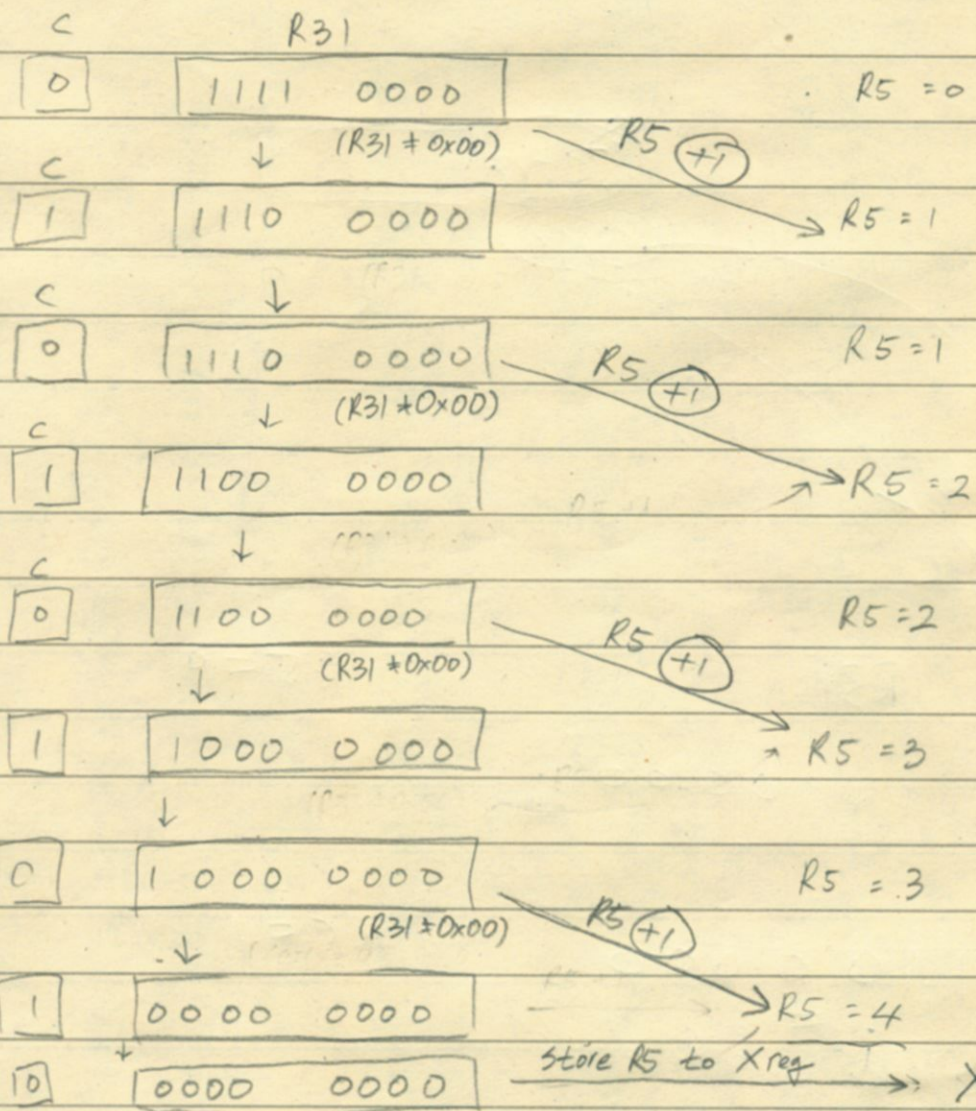 C R31
0 1111 0000 R5 = 0
(R31 ≠ 0x00) R5 +1
C
1 1110 0000 R5 = 1
C
0 1110 0000 R5 = 1
(R31 ≠ 0x00) R5 +1
C
1 1100 0000 R5 = 2
C
0 1100 0000 R5 = 2
(R31 ≠ 0x00) R5 +1
1 1000 0000 R5 = 3
0 1000 0000 R5 = 3
(R31 ≠ 0x00) R5 +1
1 0000 0000 R5 = 4
store R5 to X reg
10 0000 0000 X